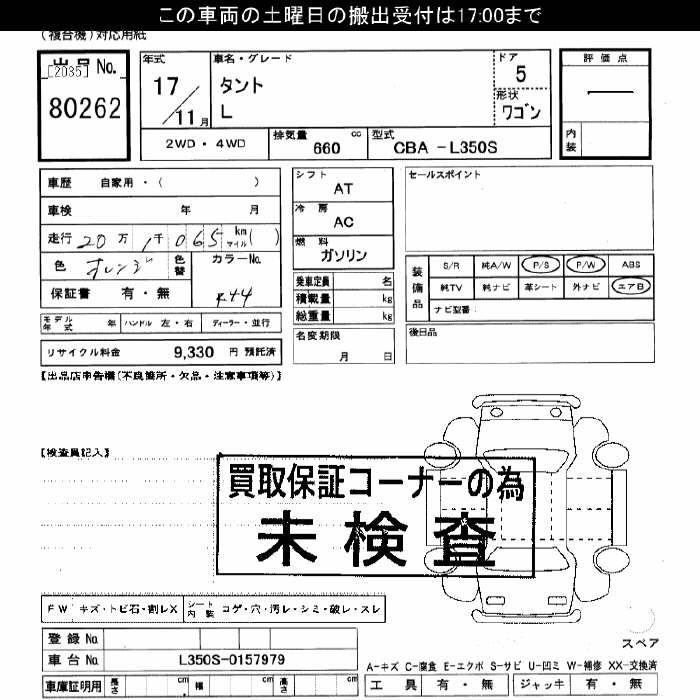 この車両の土曜日の搬出受付は17:00まで
(複合機)対応用紙
出品No.
[2035]
80262
年式
17/11月
車名・グレード
タント
L
ドア
5
形状
ワゴン
評価点
―
内装
2WD・4WD
排気量 660 cc
型式 CBA -L350S
車歴 自家用・( )
車検 年 月
走行 20万1千065 km マイル( )
色 オレンジ
色替
カラーNo.
R44
保証書 有・無
モデル年式 年 ハンドル 左・右 ディーラー・並行
リサイクル料金 9,330 円 預託済
シフト
AT
冷房
AC
燃料
ガソリン
乗車定員 名
積載量 kg
総重量 kg
名変期限
月 日
セールスポイント
装備品
S/R 純A/W P/S P/W ABS
純TV 純ナビ 革シート 外ナビ エアB
ナビ型番:
後日品
【出品店申告欄(不良箇所・欠品・注意事項等)】
【検査員記入】
買取保証コーナーの為
未検査
FW キズ・トビ石・割レX
シート内装 コゲ・穴・汚レ・シミ・破レ・スレ
登録No.
車台No. L350S-0157979
車庫証明用 長さ cm 幅 cm 高さ cm
スペア
A-キズ C-腐食 E-エクボ S-サビ U-凹ミ W-補修 XX-交換済
工具 有・無 ジャッキ 有・無